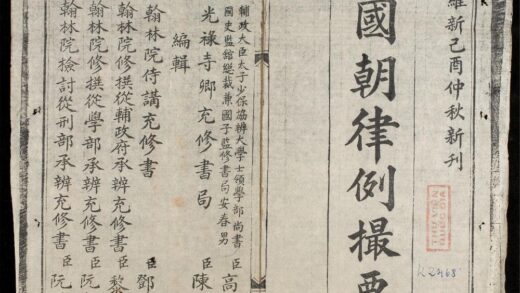 維新己酉仲秋新刊
國朝律例撮要
K 2468
輔政大臣太子少保協辨大學士領學部尚書
國史監舘總裁兼國子監修書局安春男
臣高
光祿寺卿充修書局
臣陳
編輯
翰林院侍講充修書
臣鄧
翰林院修撰從輔政府承辨充修書
臣黎
翰林院修撰從學部承辨充修書
臣阮
翰林院檢討從刑部承辨充修書
臣阮